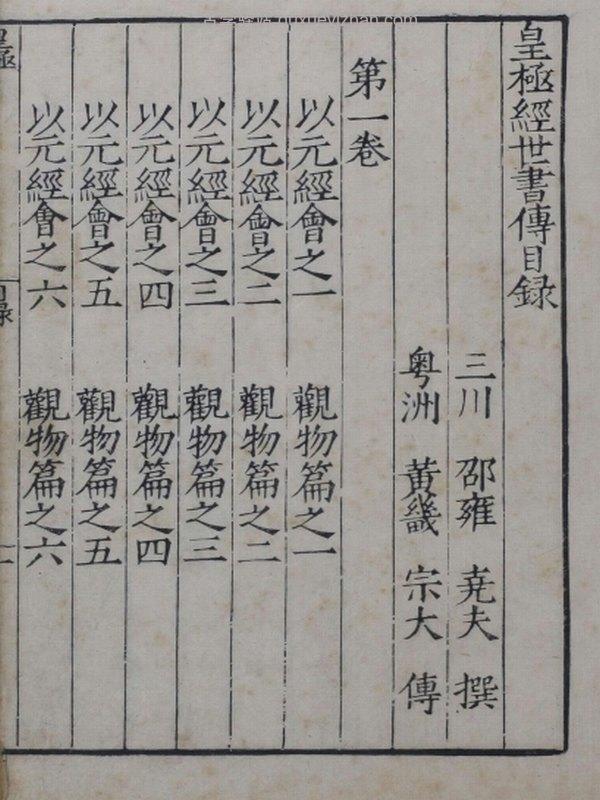 皇極經世書傳目録
三川 邵雍 尭夫 撰
粤洲 黃畿 宗大 傳
第一卷
以元經會之一 觀物篇之一
以元經會之二 觀物篇之二
以元經會之三 觀物篇之三
以元經會之四 觀物篇之四
以元經會之五 觀物篇之五
以元經會之六 觀物篇之六